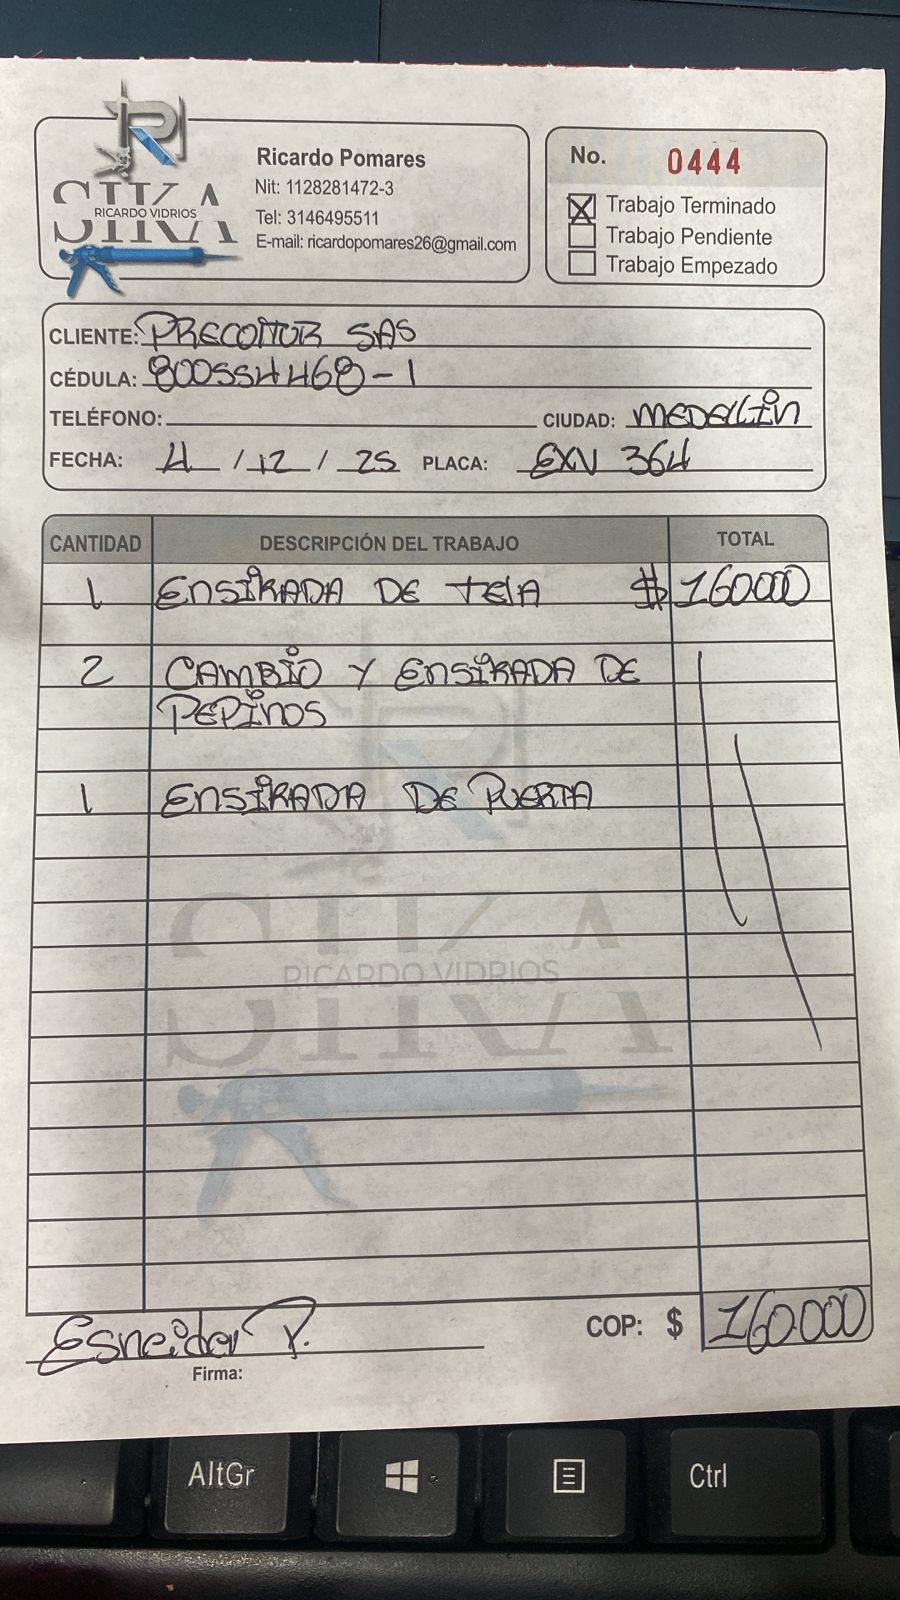 R
SIKA
RICARDO VIDRIOS
Ricardo Pomares
Nit: 1128281472-3
Tel: 3146495511
E-mail: ricardopomares26@gmail.com
No. 0444
Trabajo Terminado
Trabajo Pendiente
Trabajo Empezado
CLIENTE: PRECOMUR SAS
CÉDULA: 800554468-1
TELÉFONO: CIUDAD: MEDELLIN
FECHA: 4 / 12 / 25 PLACA: EXV 364
CANTIDAD DESCRIPCIÓN DEL TRABAJO TOTAL
1 ENSIKADA DE TELA $ 160000
2 CAMBIO Y ENSIKADA DE
PEPINOS
1 ENSIKADA DE PUERTA
SIKA
RICARDO VIDRIOS
Esneider P.
Firma:
COP: $ 160.000
AltGr
Ctrl